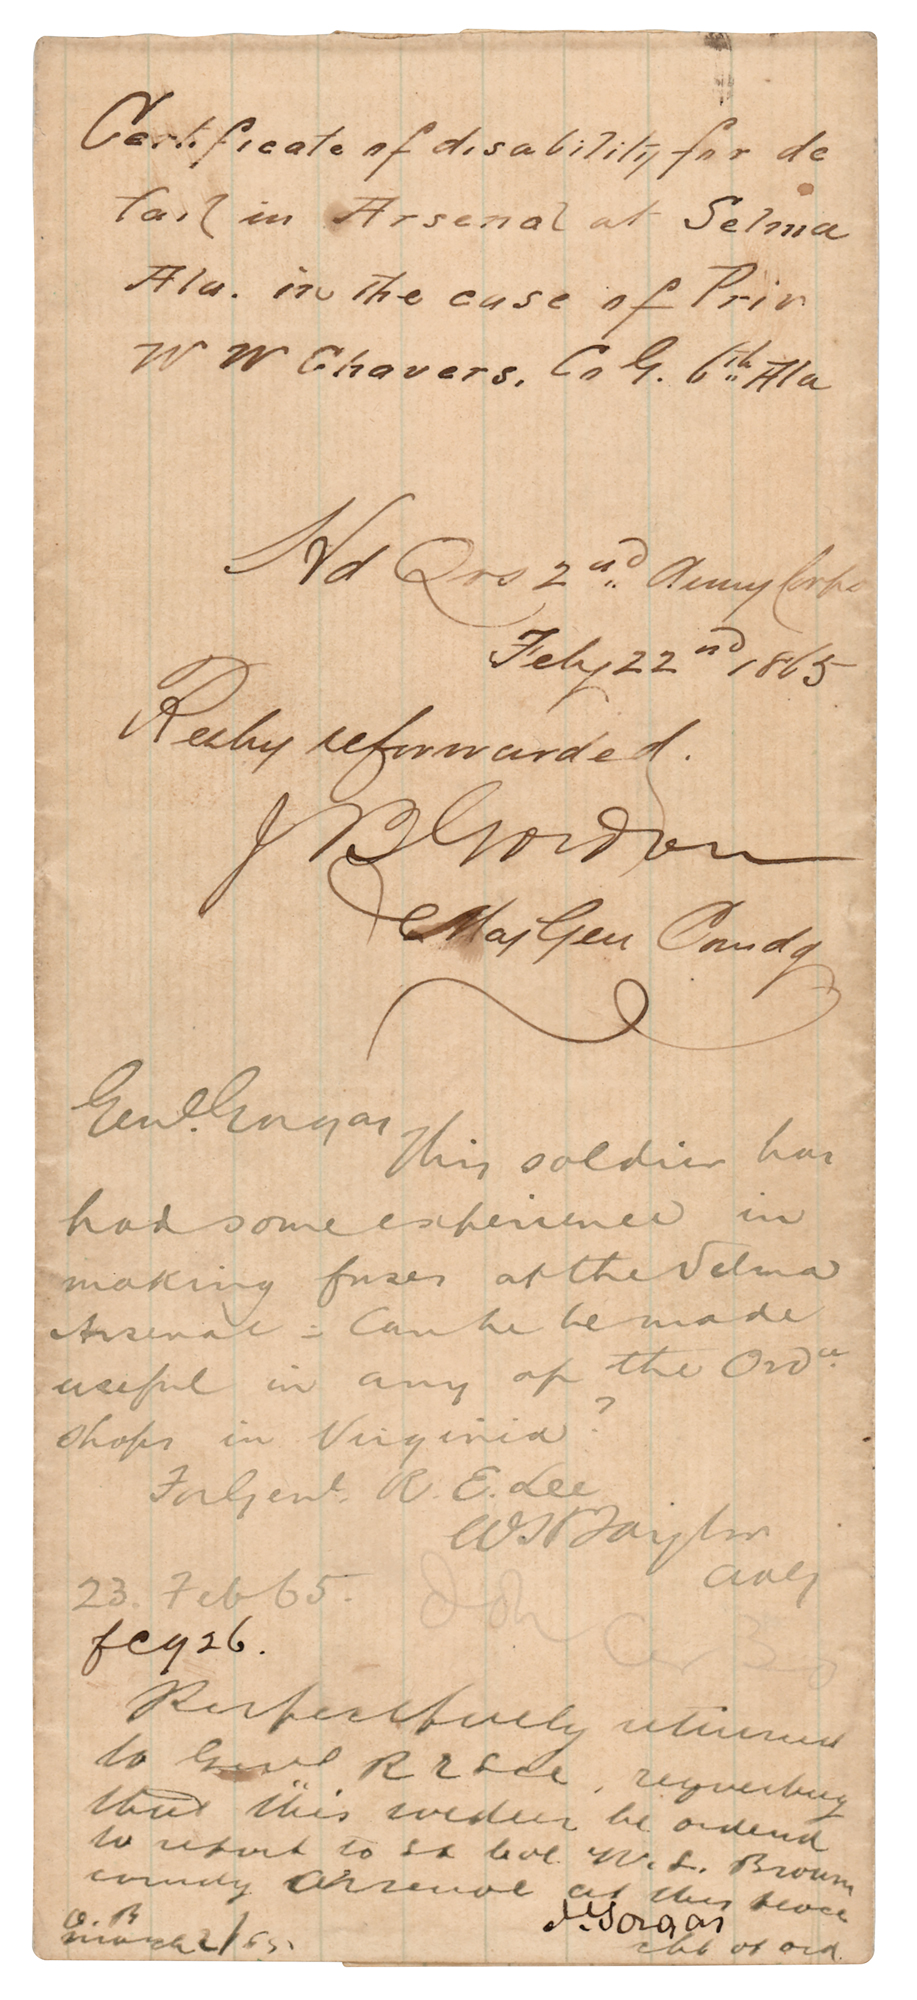 Certificate of disability for de
tail in Arsenal at Selma
Ala. in the case of Priv
W W Chavers, Co G. 6th Ala
Hd Qrs 2nd Army Corps
Feby 22nd 1865
Resby reforwarded.
J B Gordon
Maj Gen Comdg
Genl. Gorgas
This soldier has
had some experience in
making fuzes at the Selma
Arsenal - Can he be made
useful in any of the Ordce
shops in Virginia?
For Genl. R. E. Lee
W H Taylor
AAG
23. Feb 65.
feby 26.
Respectfully returned
to Genl R E Lee, requesting
that this soldier be ordered
to report to Lt Col W. L. Broun
comdg Arsenal at this place
J. Gorgas
O. B
March 2/65.
chf of ord.